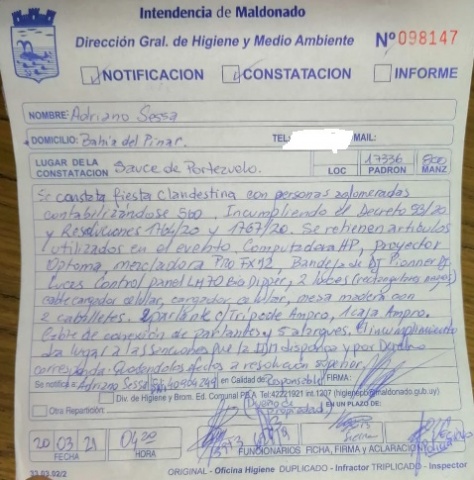 Intendencia de Maldonado
Dirección Gral. de Higiene y Medio Ambiente Nº 098147
NOTIFICACION CONSTATACION INFORME
NOMBRE: Adriano Sessa
DOMICILIO: Bahía del Pinar. TEL: MAIL:
LUGAR DE LA CONSTATACION Sauce de Portezuelo. LOC 17336 PADRON 800 MANZ
Se constata fiesta clandestina con personas aglomeradas
contabilizándose 500. Incumpliendo el Decreto 93/20
y Resoluciones 1764/20 y 1767/20. Se retienen artículos
utilizados en el evento. Computadora HP, Proyector
Optoma, mezcladora Pro FX12, Bandeja de DJ Pionner DJ
Luces Control panel LM70 Big Dipper, 2 luces
cable cargador celular, cargador celular, mesa madera con
2 caballetes. 2 parlante c/Trípode Ampro, 1 caja Ampro.
Cable de conexión de parlantes y 5 alargues. El incumplimiento
da lugar a las sanciones que la IDM disponga y por Derecho
corresponda. Quedando los efectos a resolución superior.
Se notifica: Adriano Sessa en Calidad de Responsible FIRMA:
Div. de Higiene y Brom. Ed. Comunal P.B.A Tel:42221921 int.1207 (higienepb@maldonado.gub.uy)
Otra Repartición: EN UN PLAZO DE:
20 03 21 0420
FECHA HORA FUNCIONARIOS FICHA, FIRMA Y ACLARACION
33.03.02/2
ORIGINAL - Oficina Higiene DUPLICADO - Infractor TRIPLICADO - Inspector